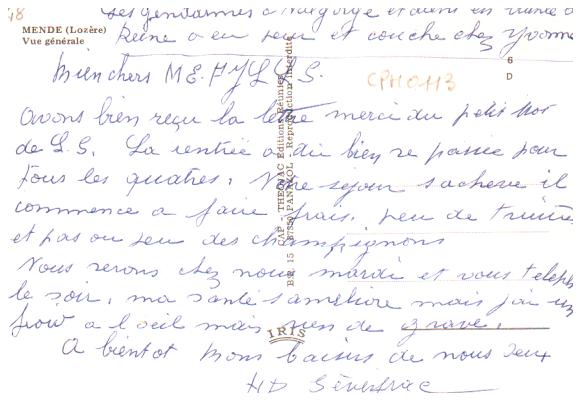 48
les gendarmes
MENDE (Lozère)
Vue générale
Reine a eu peur et couche chez Yvonne
6
D
Mien chers M E. H Y L Y S.
CPH 0113
Avons bien reçu la lettre merci du petit mot
de L S. La rentrée a du bien se passée pour
tous les quatres. Notre sejour s'acheve il
commence a faire frais. peu de truites
et pas ou peu des champignons
Nous serons chez nous mardi et vous teleph
le soir, ma santé s'améliore mais j'ai un
a l'oeil mais rien de grave.
A bientot Mons baisus de nous deux
CAP - THEOJAC Editions Réunies
B.P. 15 - 87350 PANAZOL - Reproduction Interdite
IRIS